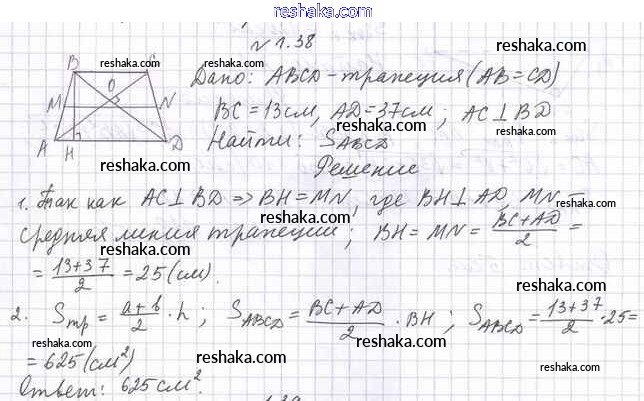 reshaka.com
№1.38
B C
O
M N
A H D
Дано: ABCD - трапеция (AB = CD)
BC = 13 см, AD = 37 см; AC ⊥ BD
Найти: S_ABCD
Решение
1. Так как AC ⊥ BD ⇒ BH = MN, где BH ⊥ AD, MN –
средняя линия трапеции; BH = MN = (BC + AD)/2 =
= (13 + 37)/2 = 25 (см).
2. S_тр = (a + b)/2 · h; S_ABCD = (BC + AD)/2 · BH; S_ABCD = (13 + 37)/2 · 25 =
= 625 (см²)
Ответ: 625 см².